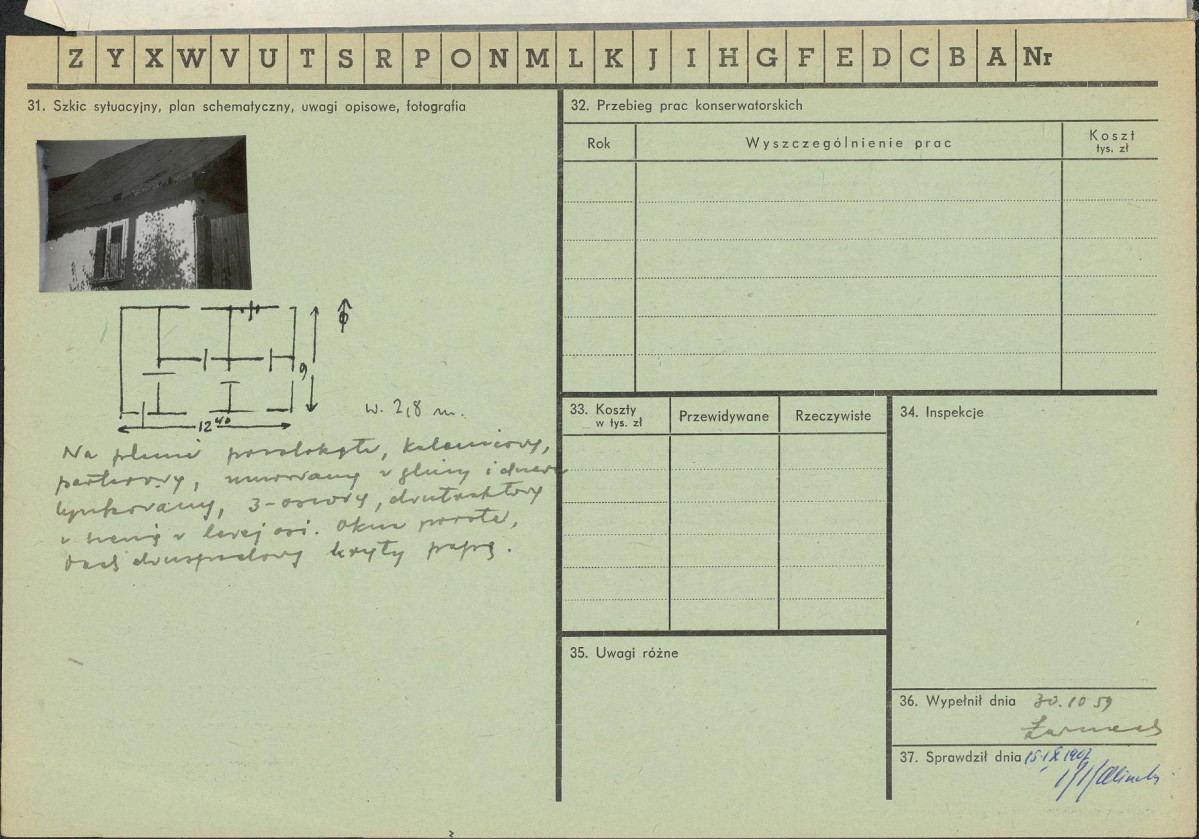 Z Y X W V U T S R P O N M L K J I H G F E D C B A Nr
31. Szkic sytuacyjny, plan schematyczny, uwagi opisowe, fotografia
9
12 40
w. 2,8 m.
Na planie prostokąta, kalenicowy,
parterowy, murowany z gliny i
tynkowany, 3-osiowy, dwutraktowy
z sienią w lewej osi. Okna proste,
dach dwuspadowy kryty papą.
32. Przebieg prac konserwatorskich
Rok Wyszczególnienie prac Koszt
tys. zł
33. Koszty
w tys. zł
Przewidywane Rzeczywiste
34. Inspekcje
35. Uwagi różne
36. Wypełnił dnia 30.10 59
37. Sprawdził dnia